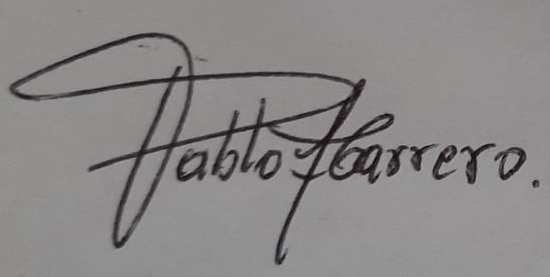 Pablo Ibarrero.